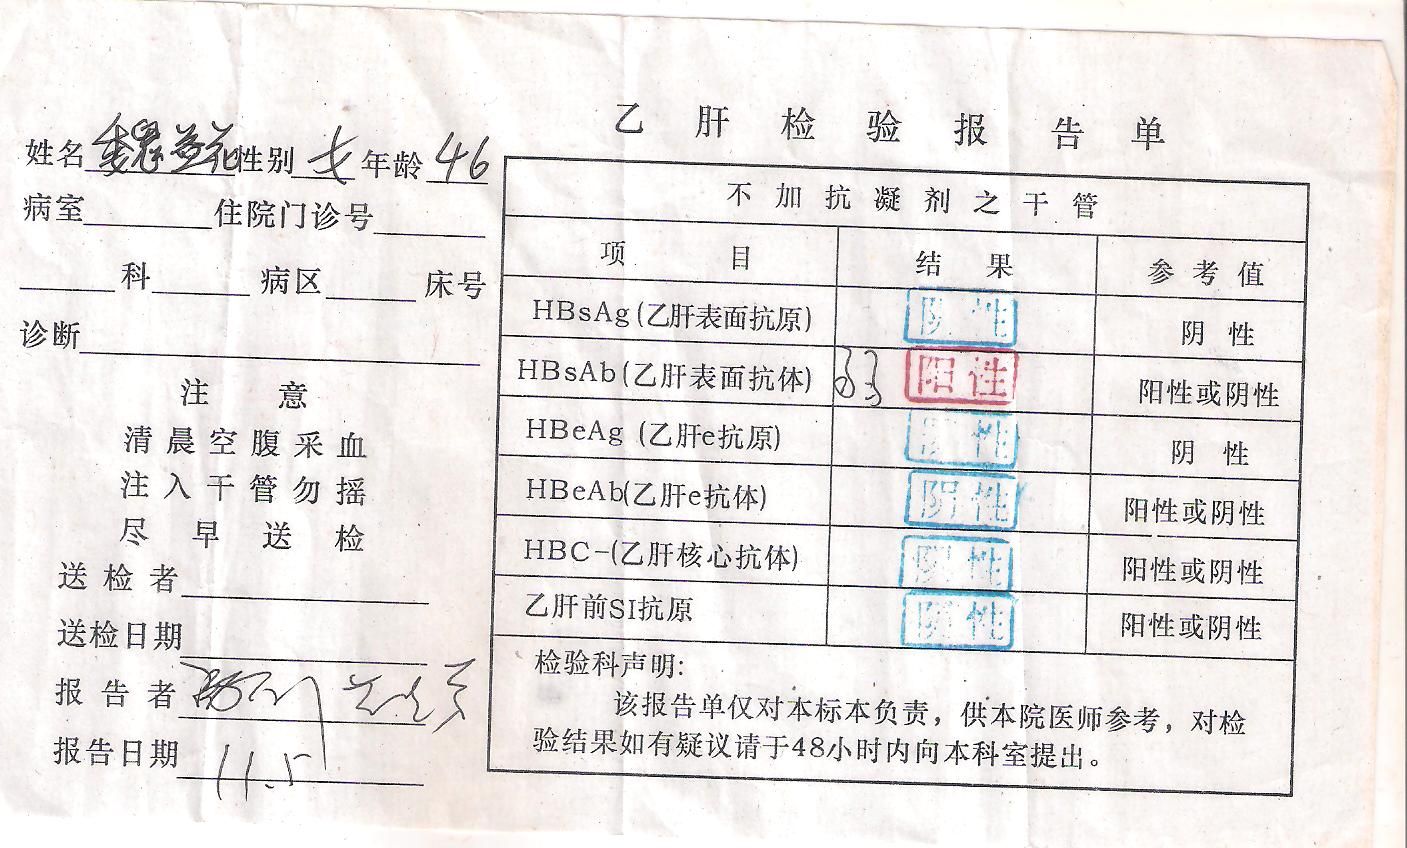 乙肝检验报告单
姓名 魏益花 性别 女 年龄 46
病室 住院门诊号
科 病区 床号
诊断
注意
清晨空腹采血
注入干管勿摇
尽早送检
送检者
送检日期
报告者
报告日期 11.5
不加抗凝剂之干管
项目 结果 参考值
HBsAg(乙肝表面抗原) 阴性 阴性
HBsAb(乙肝表面抗体) 阳性 阳性或阴性
HBeAg (乙肝e抗原) 阴性 阴性
HBeAb(乙肝e抗体) 阴性 阳性或阴性
HBC-(乙肝核心抗体) 阴性 阳性或阴性
乙肝前SI抗原 阴性 阳性或阴性
检验科声明:
该报告单仅对本标本负责，供本院医师参考，对检
验结果如有疑议请于48小时内向本科室提出。